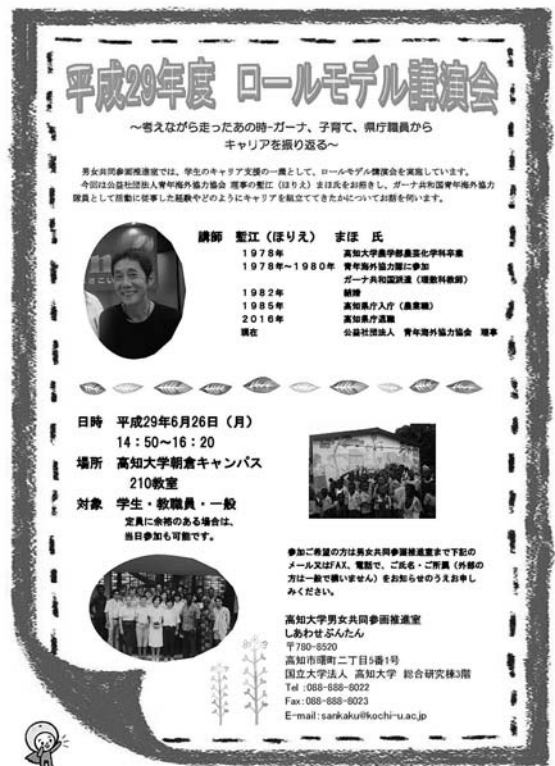 平成29年度 ロールモデル講演会
～考えながら走ったあの時-ガーナ、子育て、県庁職員から
キャリアを振り返る～
男女共同参画推進室では、学生のキャリア支援の一環として、ロールモデル講演会を実施しています。
今回は公益社団法人青年海外協力協会 理事の堀江（ほりえ）まほ氏をお招きし、ガーナ共和国青年海外協力
隊員として活動に従事した経験やどのようにキャリアを組立ててきたかについてお話を伺います。
講師 堀江（ほりえ） まほ 氏
1978年 高知大学農学部農芸化学科卒業
1978年～1980年 青年海外協力隊に参加
ガーナ共和国派遣（理数科教師）
1982年 結婚
1985年 高知県庁入庁（農業職）
2016年 高知県庁退職
現在 公益社団法人 青年海外協力協会 理事
日時 平成29年6月26日（月）
14：50～16：20
場所 高知大学朝倉キャンパス
210教室
対象 学生・教職員・一般
定員に余裕のある場合は、
当日参加も可能です。
参加ご希望の方は男女共同参画推進室まで下記の
メール又はFAX、電話で、ご氏名・ご所属（外部の
方は一般で構いません）をお知らせのうえお申し
みください。
高知大学男女共同参画推進室
しあわせぶんたん
〒780-8520
高知市曙町二丁目5番1号
国立大学法人 高知大学 総合研究棟3階
Tel :088-888-8022
Fax:088-888-8023
E-mail:sankaku@kochi-u.ac.jp